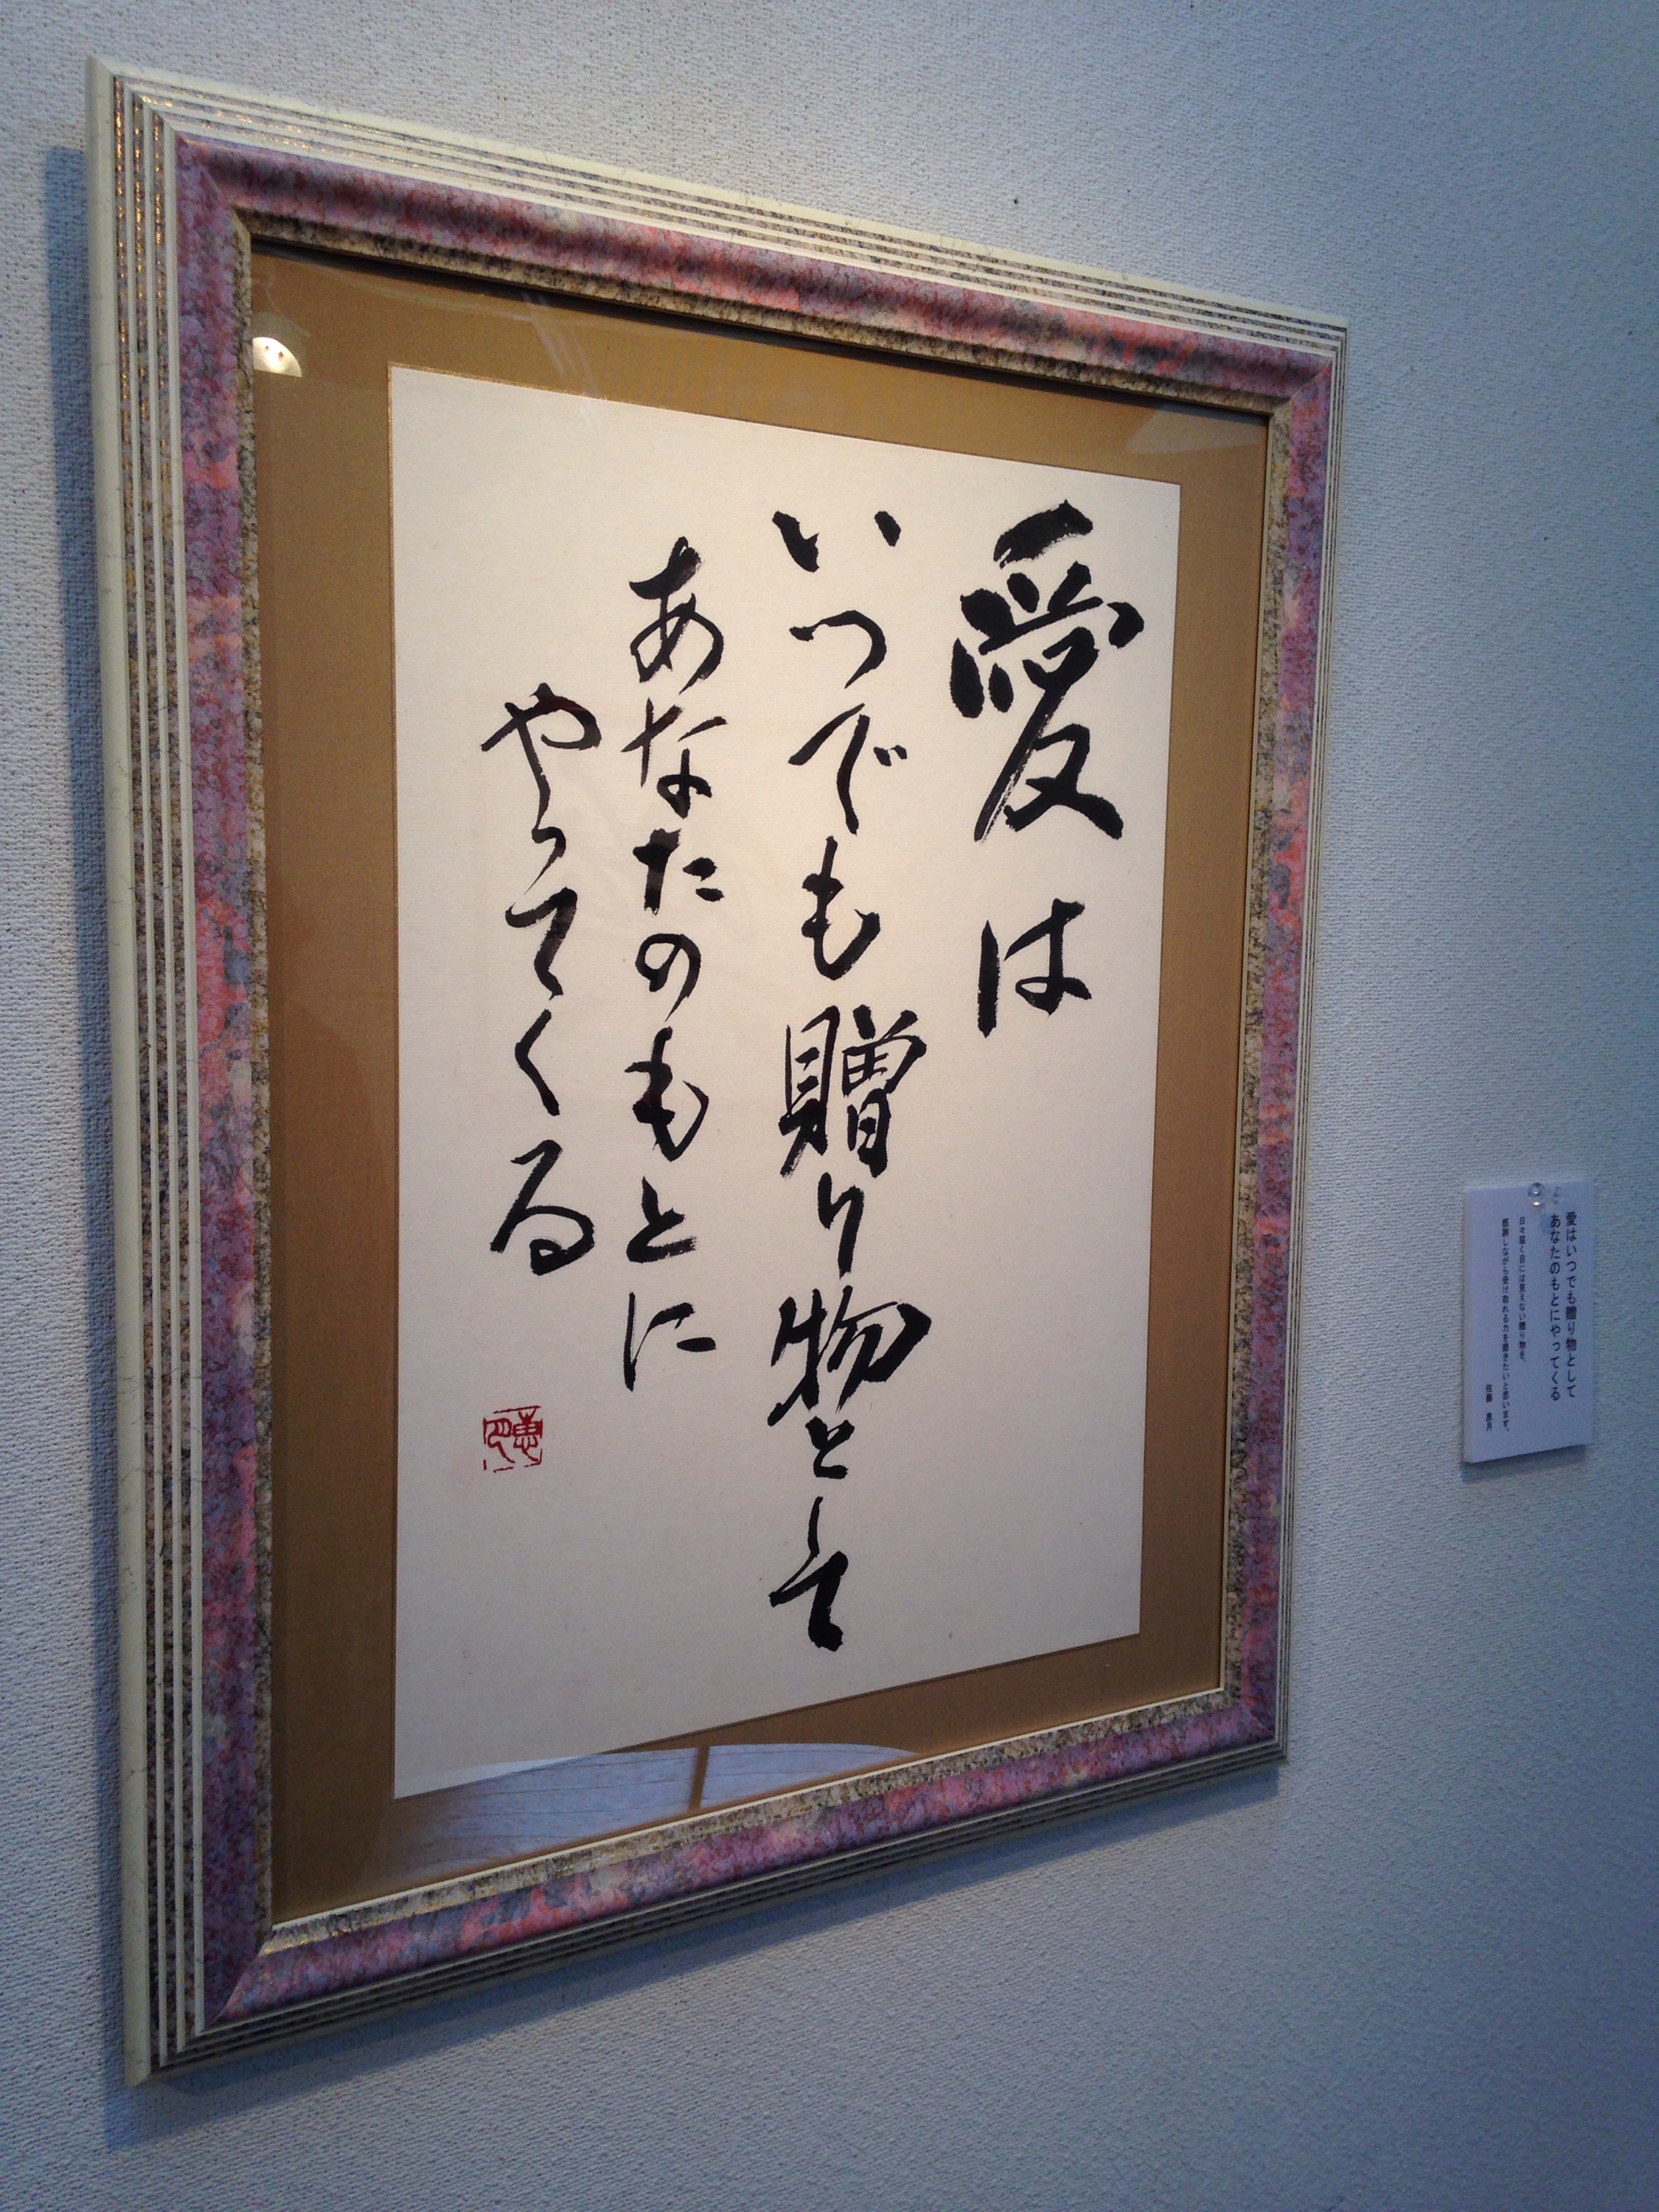 愛は
いつでも贈り物として
あなたのもとに
やってくる
愛はいつでも贈り物として
あなたのもとにやってくる
日々届く目には見えない贈り物を、
感謝しながら受け取れる力を磨きたいと思います。
佐藤 恵月